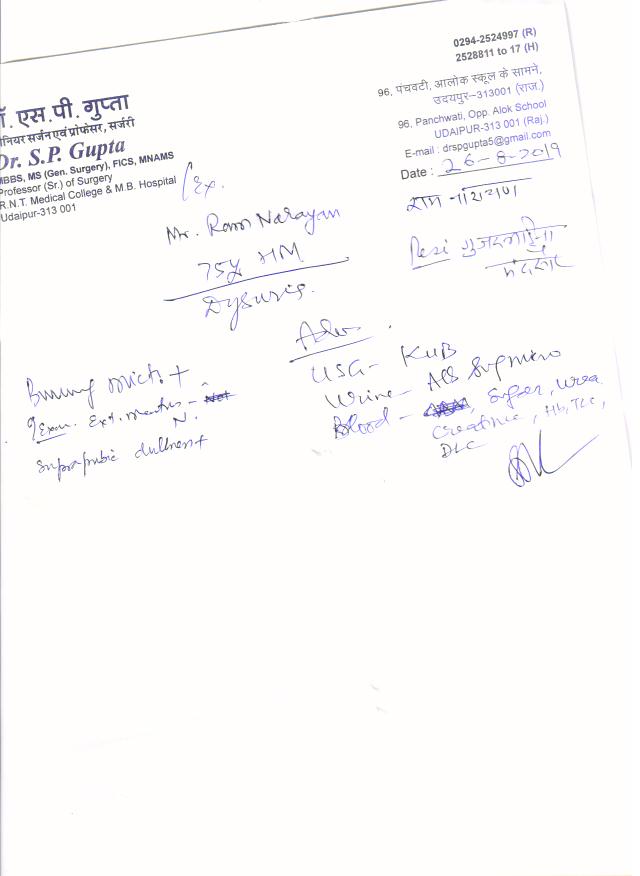 0294-2524997 (R)
2528811 to 17 (H)
96, पंचवटी, आलोक स्कूल के सामने,
उदयपुर–313001 (राज.)
96, Panchwati, Opp. Alok School
UDAIPUR-313 001 (Raj.)
E-mail : drspgupta5@gmail.com
Date : 26-8-2019
ॉ. एस.पी. गुप्ता
नियर सर्जन एवं प्रोफेसर, सर्जरी
Dr. S.P. Gupta
MBBS, MS (Gen. Surgery), FICS, MNAMS
Professor (Sr.) of Surgery
R.N.T. Medical College & M.B. Hospital
Udaipur-313 001
Ex.
राम नारायण
Mr. Ram Narayan
75y HM
Dysuria.
Adv.
USG- KUB
Urine-
Blood- , Sugar, Urea
Creatinine, Hb, TLC,
DLC
Burning mict. +
Exam. Ext. meatus -
N.
Suprapubic dullness+